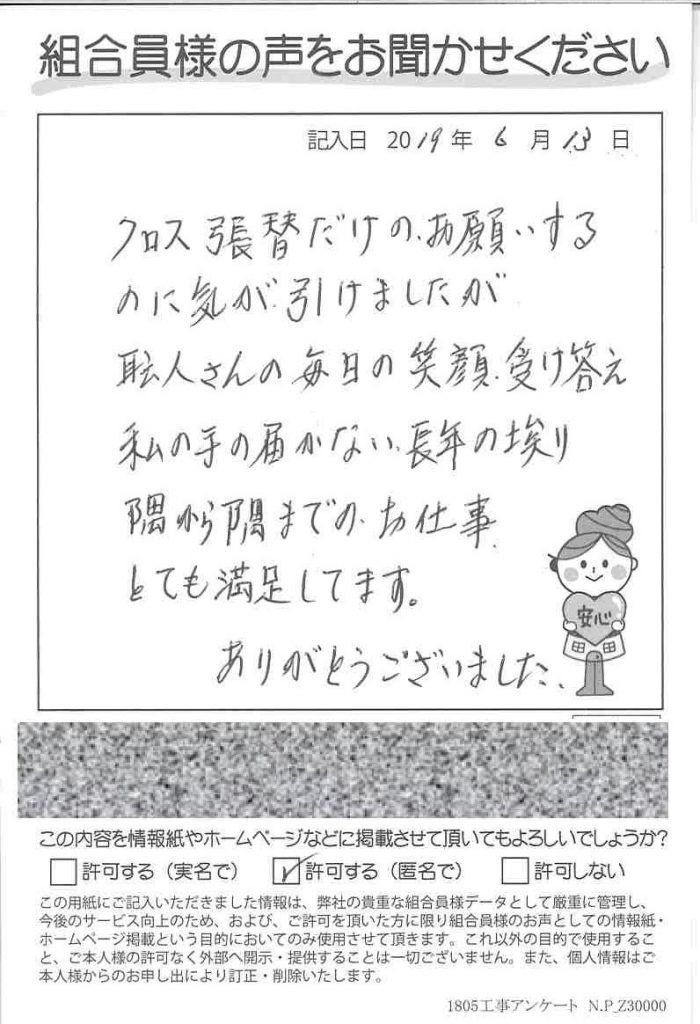 組合員様の声をお聞かせください
記入日 2019年 6月 13日
クロス張替だけの、お願いする
のに気が引けましたが
職人さんの毎日の笑顔、受け答え
私の手の届かない、長年の埃り
隅から隅までの、お仕事
とても満足してます。
ありがとうございました、
安心
この内容を情報紙やホームページなどに掲載させて頂いてもよろしいでしょうか?
許可する(実名で) 許可する(匿名で) 許可しない
この用紙にご記入いただきました情報は、弊社の貴重な組合員様データとして厳重に管理し、
今後のサービス向上のため、および、ご許可を頂いた方に限り組合員様のお声としての情報紙・
ホームページ掲載という目的においてのみ使用させて頂きます。これ以外の目的で使用するこ
と、ご本人様の許可なく外部へ開示・提供することは一切ございません。また、個人情報はご
本人様からのお申し出により訂正・削除いたします。
1805工事アンケート N.P_Z30000